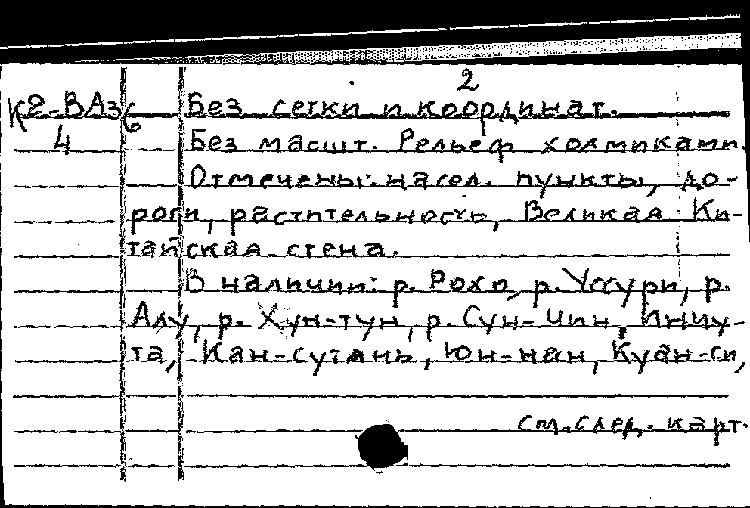 2
К2-ВАз/6 Без сетки и координат.
4 Без масшт. Рельеф холмиками.
Отмечены: насел. пункты, до-
роги, растительность, Великая Ки-
тайская стена.
В наличии: р. Рохо, р. Уссури, р.
Алу, р. Хун-тун, р. Сун-чин,
та, Кан-сутань, Юн-нан, Куан-си,
см. след. карт.